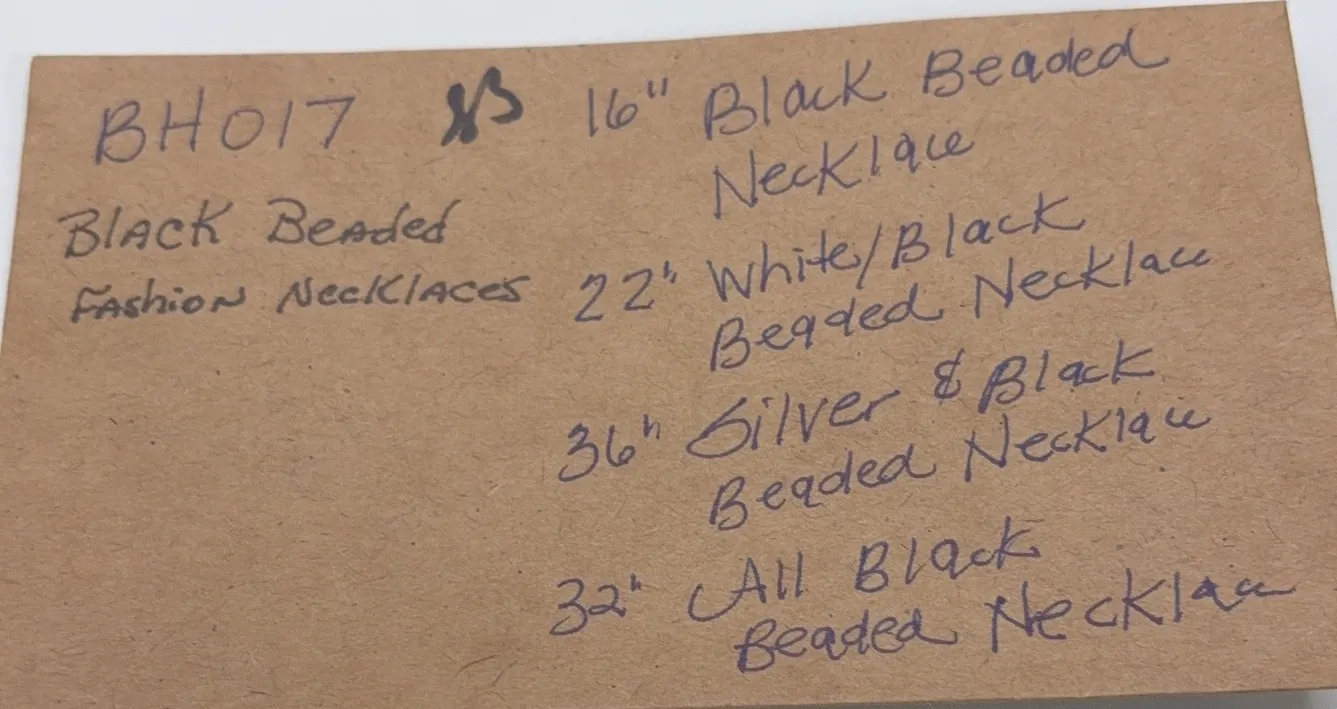 BH017
Black Beaded
Fashion Necklaces
16" Black Beaded
Necklace
22" White/Black
Beaded Necklace
36" Silver & Black
Beaded Necklace
32" All Black
Beaded Necklace